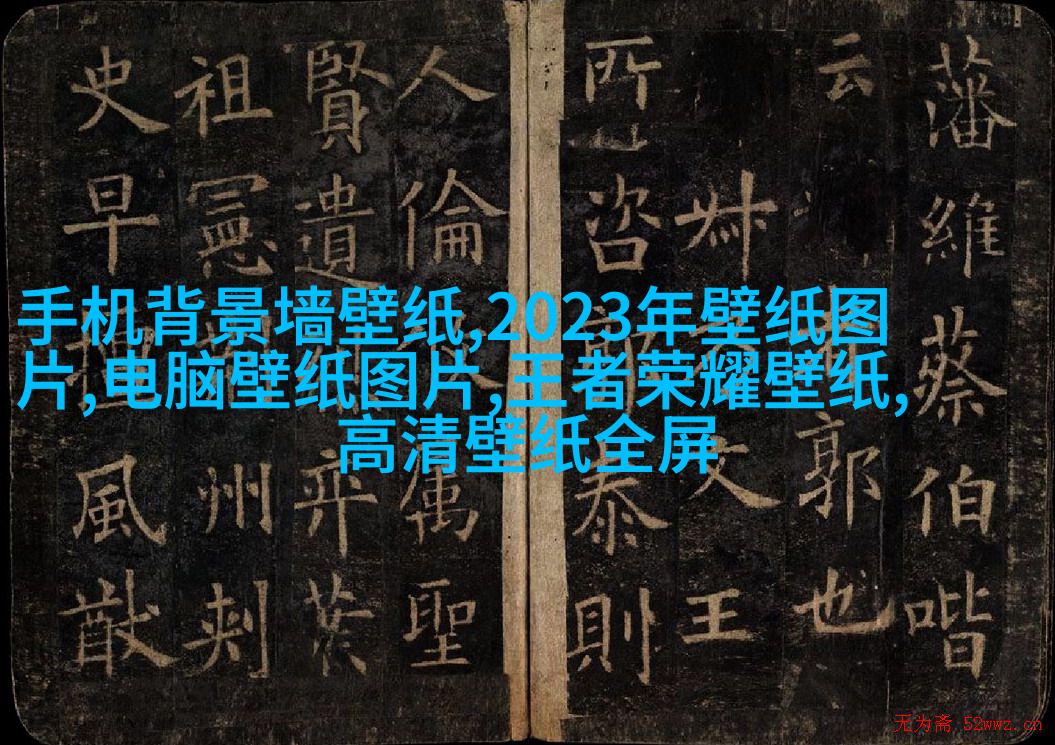 手机背景墙壁纸,2023年壁纸图
片,电脑壁纸图片,王者荣耀壁纸,
高清壁纸全屏
藩維蔡伯喈
云郭也
文王
所咨泰則
人倫屬聖
賢遺弈葉
祖憲州刺
史早擅風猷
无为斋 52wwz.cn